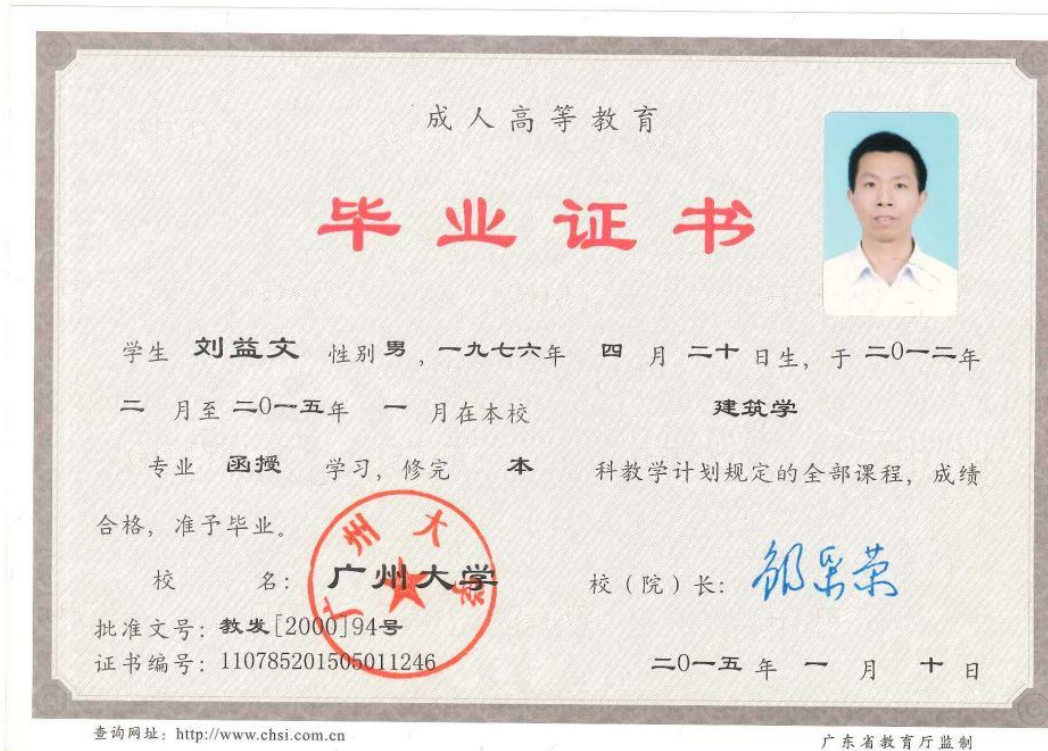 成人高等教育
毕业证书
学生 刘益文 性别 男 , 一九七六年 四 月 二十 日生, 于 二0一二年
二 月至 二0一五年 一 月在本校 建筑学
专业 函授 学习, 修完 本 科教学计划规定的全部课程, 成绩
合格, 准予毕业。
广州大学
校 名: 广州大学 校（院）长:
批准文号: 教发[2000]94号
证书编号: 110785201505011246 二0一五 年 一 月 十 日
查询网址: http://www.chsi.com.cn 广东省教育厅监制